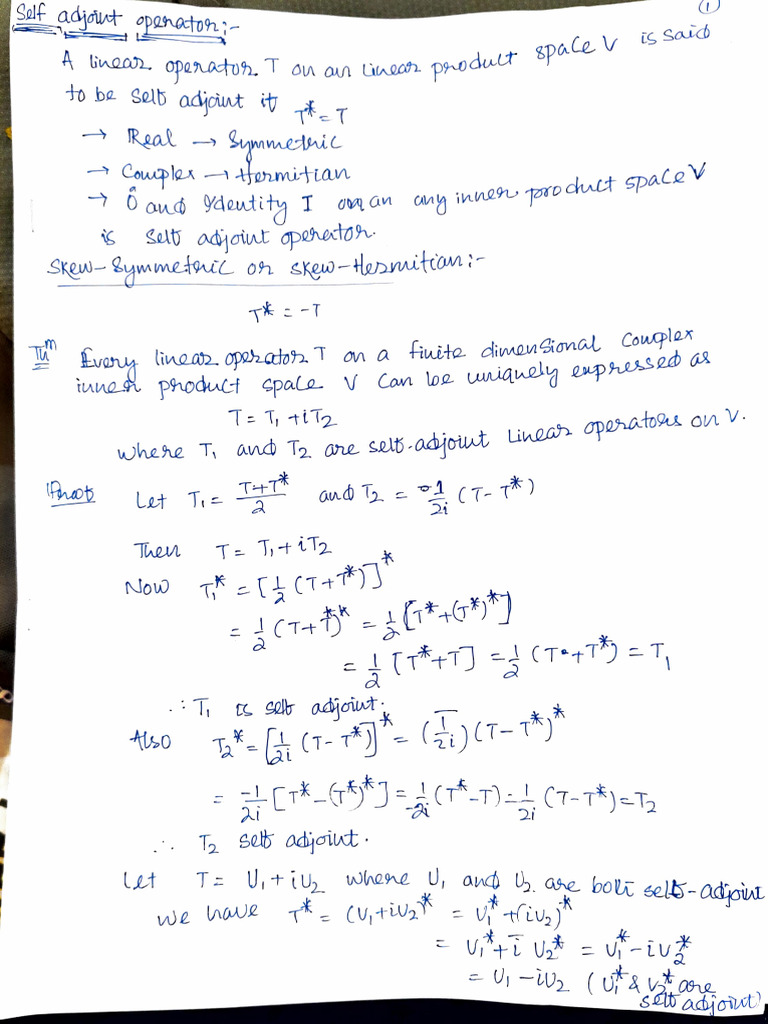 ①
Self adjoint operator:-
A linear operator T on an linear product space V is said
to be self adjoint if T* = T
→ Real → Symmetric
→ Complex → Hermitian
→ Ô and Identity I on an any inner product space V
is self adjoint operator.
Skew-Symmetric or Skew-Hermitian:-
T* = -T
Thm Every linear operator T on a finite dimensional complex
inner product space V can be uniquely expressed as
T = T₁ + iT₂
where T₁ and T₂ are self-adjoint linear operators on V.
Proof Let T₁ = (T+T*)/2 and T₂ = 1/2i (T - T*)
Then T = T₁ + iT₂
Now T₁* = [1/2 (T+T*)]*
= 1/2 (T+T*)* = 1/2 [T* + (T*)*]
= 1/2 [T* + T] = 1/2 (T + T*) = T₁
∴ T₁ is self adjoint.
Also T₂* = [1/2i (T - T*)]* = (1/2i)‾ (T - T*)*
= -1/2i [T* - (T*)*] = 1/-2i (T* - T) = 1/2i (T - T*) = T₂
∴ T₂ self adjoint.
Let T = U₁ + iU₂ where U₁ and U₂ are both self-adjoint
we have T* = (U₁ + iU₂)* = U₁* + (iU₂)*
= U₁* + i‾ U₂* = U₁* - iU₂*
= U₁ - iU₂ (U₁* & U₂* are
self adjoint)